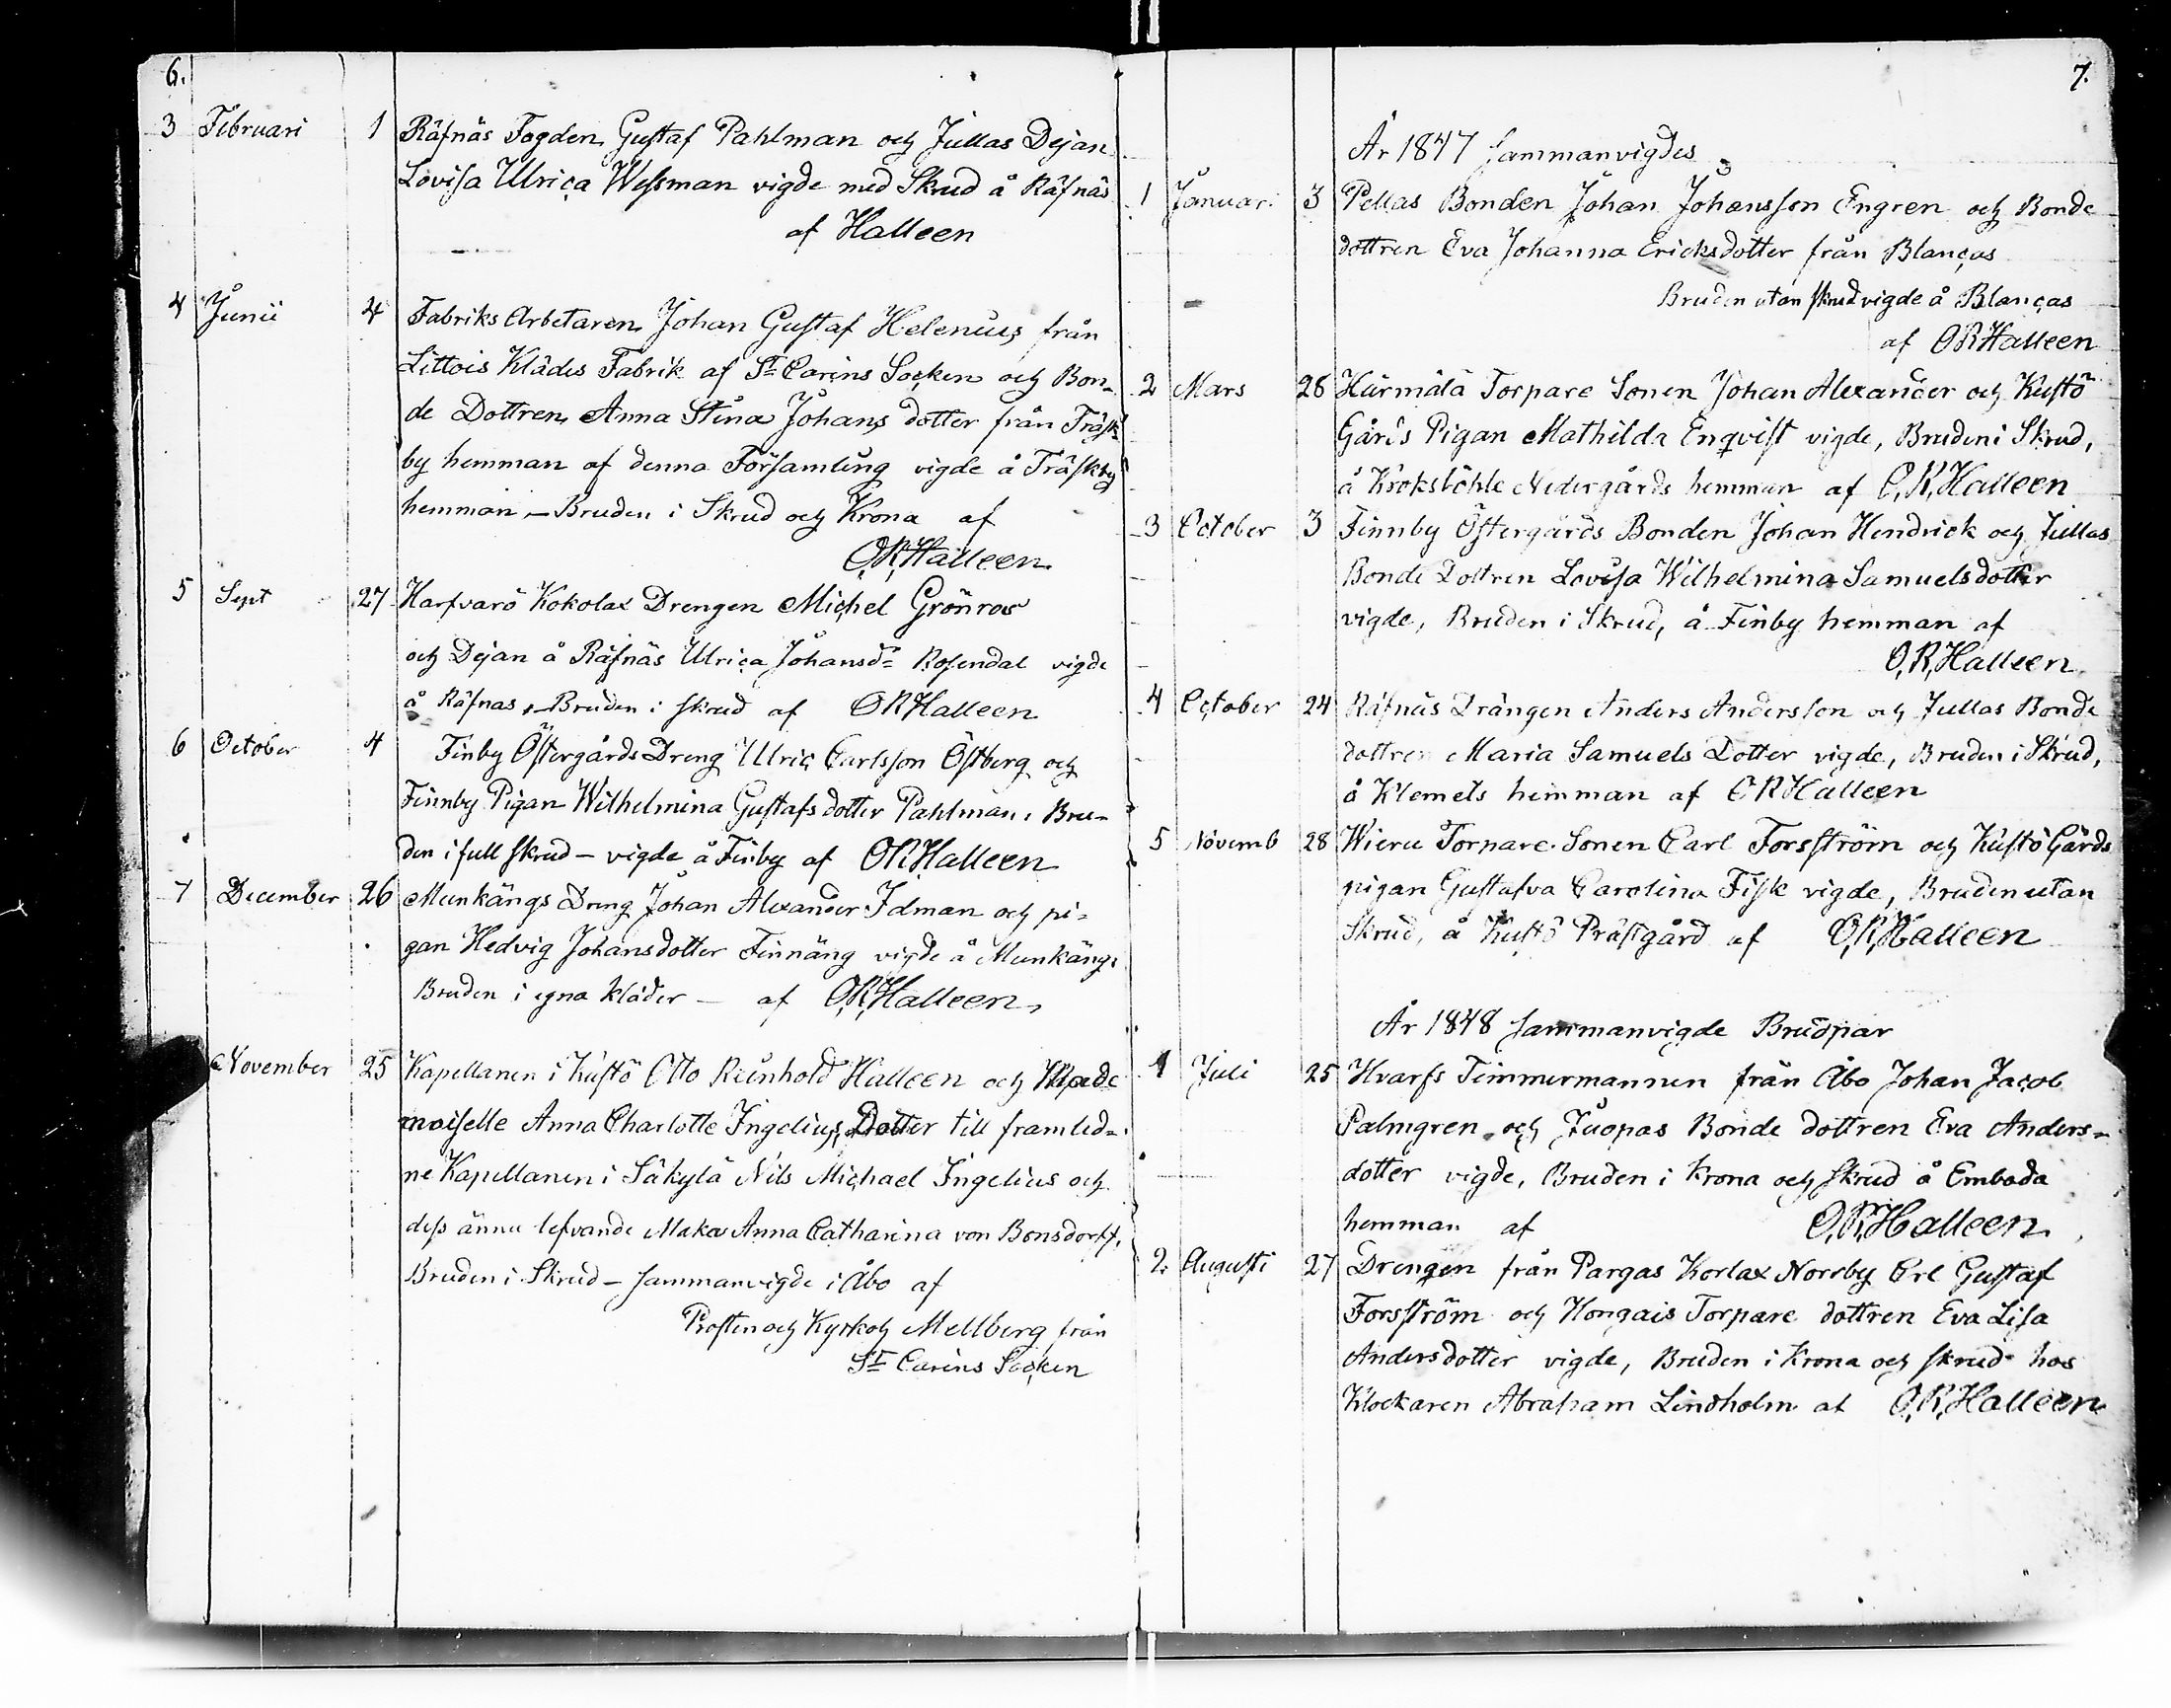 6.
3 Februari 1 Räfnäs Fogden Gustaf Pahlman och Jullas Dejan
Lovisa Ulrica Wessman vigde med Skrud å Räfnäs
af Halleen
4 Junii 4 Fabriks Arbetaren Johan Gustaf Helenius från
Littois Klädes Fabrik af St Carins Socken och Bon-
de Dottren Anna Stina Johans dotter från Träsk
by hemman af denna Församling vigde å Träskby
hemman – Bruden i Skrud och Krona af
O.R.Halleen
5 Sept 27 Harfvarö Kokolax Drengen Michel Grönroos
och Dejan å Räfnäs Ulrica Johansdr Rosendal vigde
å Räfnas, – Bruden i skrud af ORHalleen
6 October 4 Finby Östergårds Dreng Ulric Carlsson Östberg och
Finnby Pigan Wilhelmina Gustafs dotter Pahlman, Bru-
den i full skrud – vigde å Finby af ORHalleen
7 December 26 Munkängs Dreng Johan Alexander Idman och pi-
gan Hedvig Johansdotter Finnäng vigde å Munkängs
Bruden i egna kläder – af O.R.Halleen,
November 25 Kapellanen i Kustö Otto Reinhold Halleen och Made
moiselle Anna Charlotte Ingelius, Dotter till framled-
ne Kapellanen i Säkylä Nils Michael Ingelius och
dess ännu lefvande Maka Anna Catharina von Bonsdorff,
Bruden i Skrud – sammanvigde i Åbo af
Prosten och Kyrkoh Mellberg från
St Carins Socken
7.
År 1847 sammanvigdes
1 Januari 3 Pellas Bonden Johan Johansson Engren och Bonde
dottren Eva Johanna Ericksdotter från Blancas
Bruden utan skrud vigde å Blancas
af ORHalleen
2 Mars 28 Härmälä Torpare Sonen Johan Alexander och Kustö
Gårds Pigan Mathilda Enqvist vigde, Bruden i Skrud,
å Kroksböhle Nedergårds hemman af O.R.Halleen
3 October 3 Finnby Östergårds Bonden Johan Hendrick och Jullas
Bonde Dottren Lovisa Wilhelmina Samuelsdotter
vigde, Bruden i Skrud, å Finby hemman af
O.R.Halleen
4 October 24 Räfnäs Drängen Anders Andersson och Jullas Bonde
dottren Maria Samuels Dotter vigde, Bruden i Skrud,
å Klemets hemman af O R Halleen
5 Novemb 28 Wieru Torpare Sonen Carl Forsström och Kustö Gårds
pigan Gustafva Carolina Fisk vigde, Bruden utan
Skrud, å Kustö Prästgård af O.R.Halleen
År 1848 sammanvigde Brudpar
1 Juli 25 Hvarfs Timmermannen från Åbo Johan Jacob
Palmgren och Juopas Bonde dottren Eva Anders-
dotter vigde, Bruden i Krona och Skrud å Emboda
hemman af O.R.Halleen
2. Augusti 27 Drengen från Pargas Korlax Norrby Erl Gustaf
Forsström och Hongais Torpare dottren Eva Lisa
Andersdotter vigde, Bruden i Krona och skrud hos
Klockaren Abraham Lindholm af O.R.Halleen